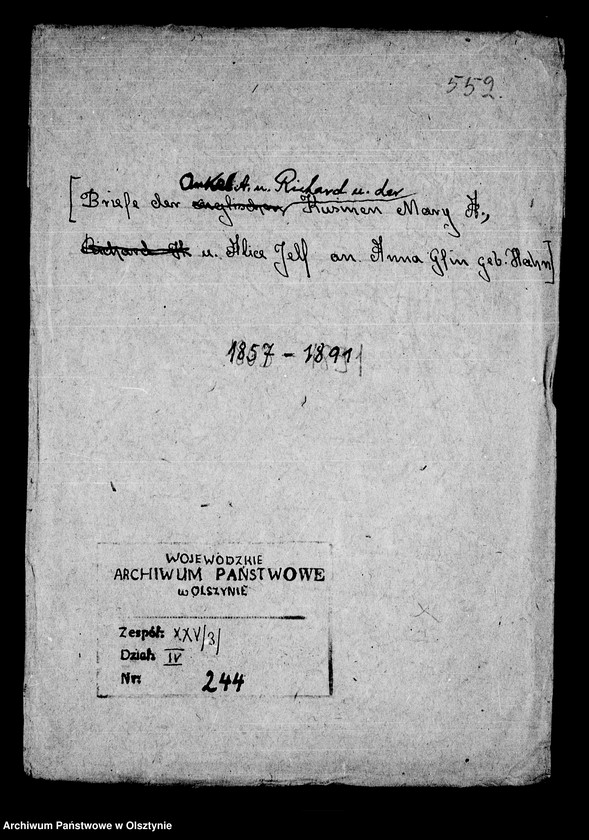 552.
Onkel A. u. Richard u. der
[Briefe der englischen Kusinen Mary A.,
Richard A u. Alice Jelf an Anna Gfin geb. Hahn]
1857 - 1891
WOJEWÓDZKIE
ARCHIWUM PAŃSTWOWE
w OLSZYNIE
Zespół: XXV/3/
Dział: IV
Nr: 244
Archiwum Państwowe w Olsztynie